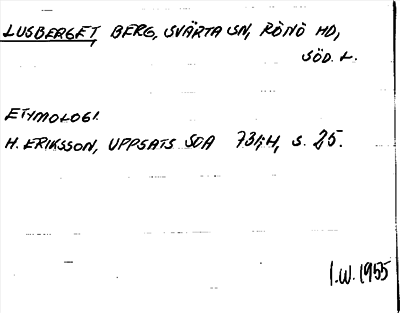 LUSBERGET, BERG, SVÄRTA SN, RÖNÖ HD,
SÖD. L.
ETYMOLOGI.
H. ERIKSSON, UPPSATS SOA 731:H, S. 25.
I.W. 1955